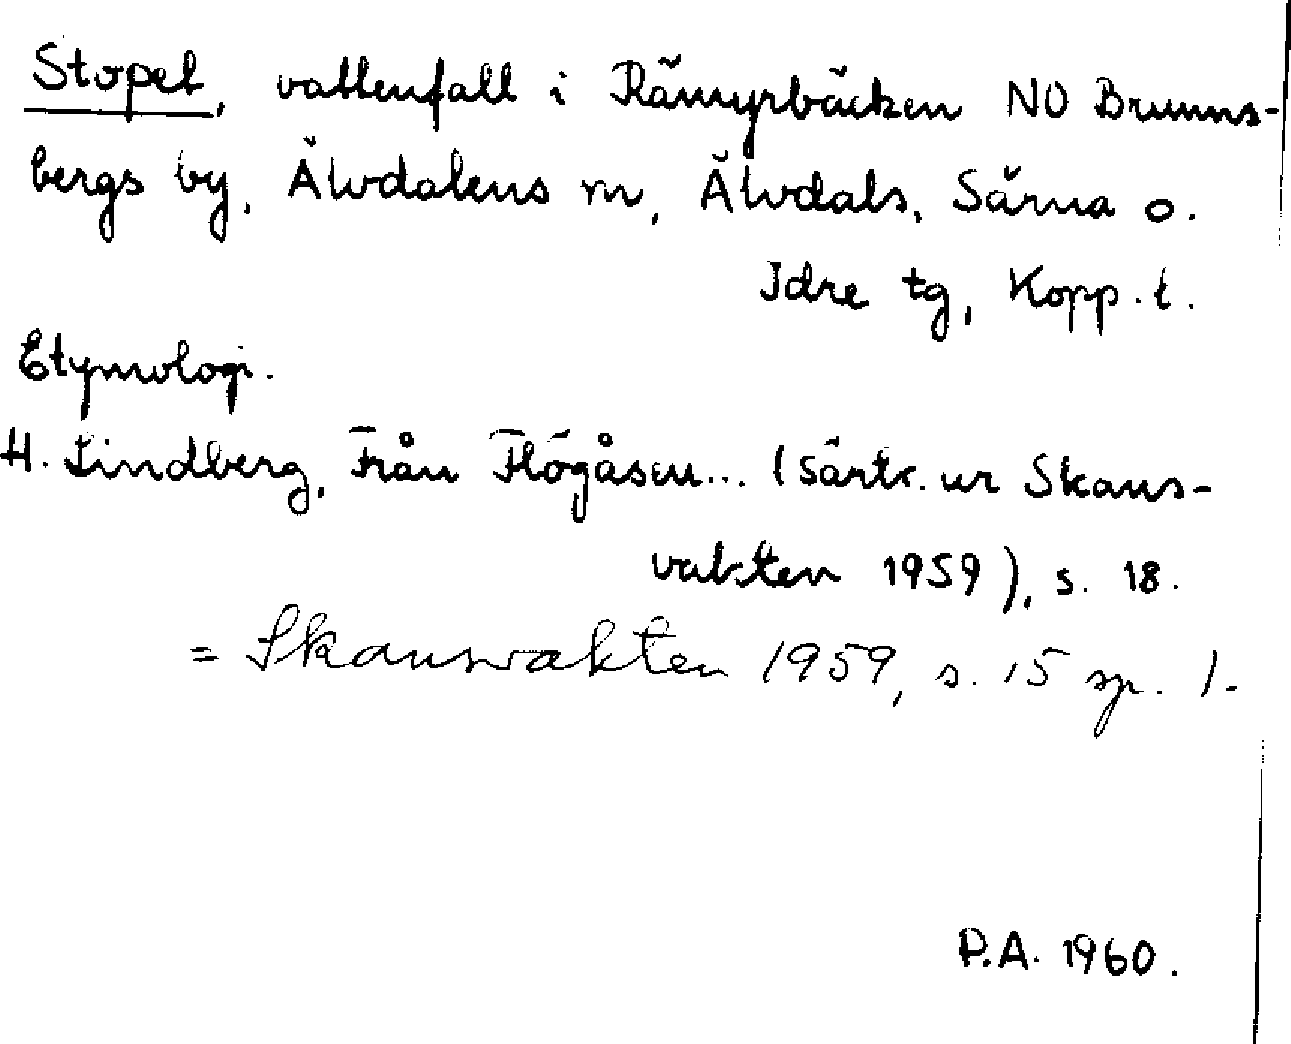 Stopet, vattenfall i Rämyrbäcken NO Brunns-
bergs by, Älvdalens sn, Älvdals, Särna o.
Idre tg, Kopp. l.
Etymologi.
H. Lindberg, Från Flögåsen... (särtr. ur Skans-
vakten 1959), s. 18.
= Skansvakten 1959, s. 15 sp. 1.
P.A. 1960.